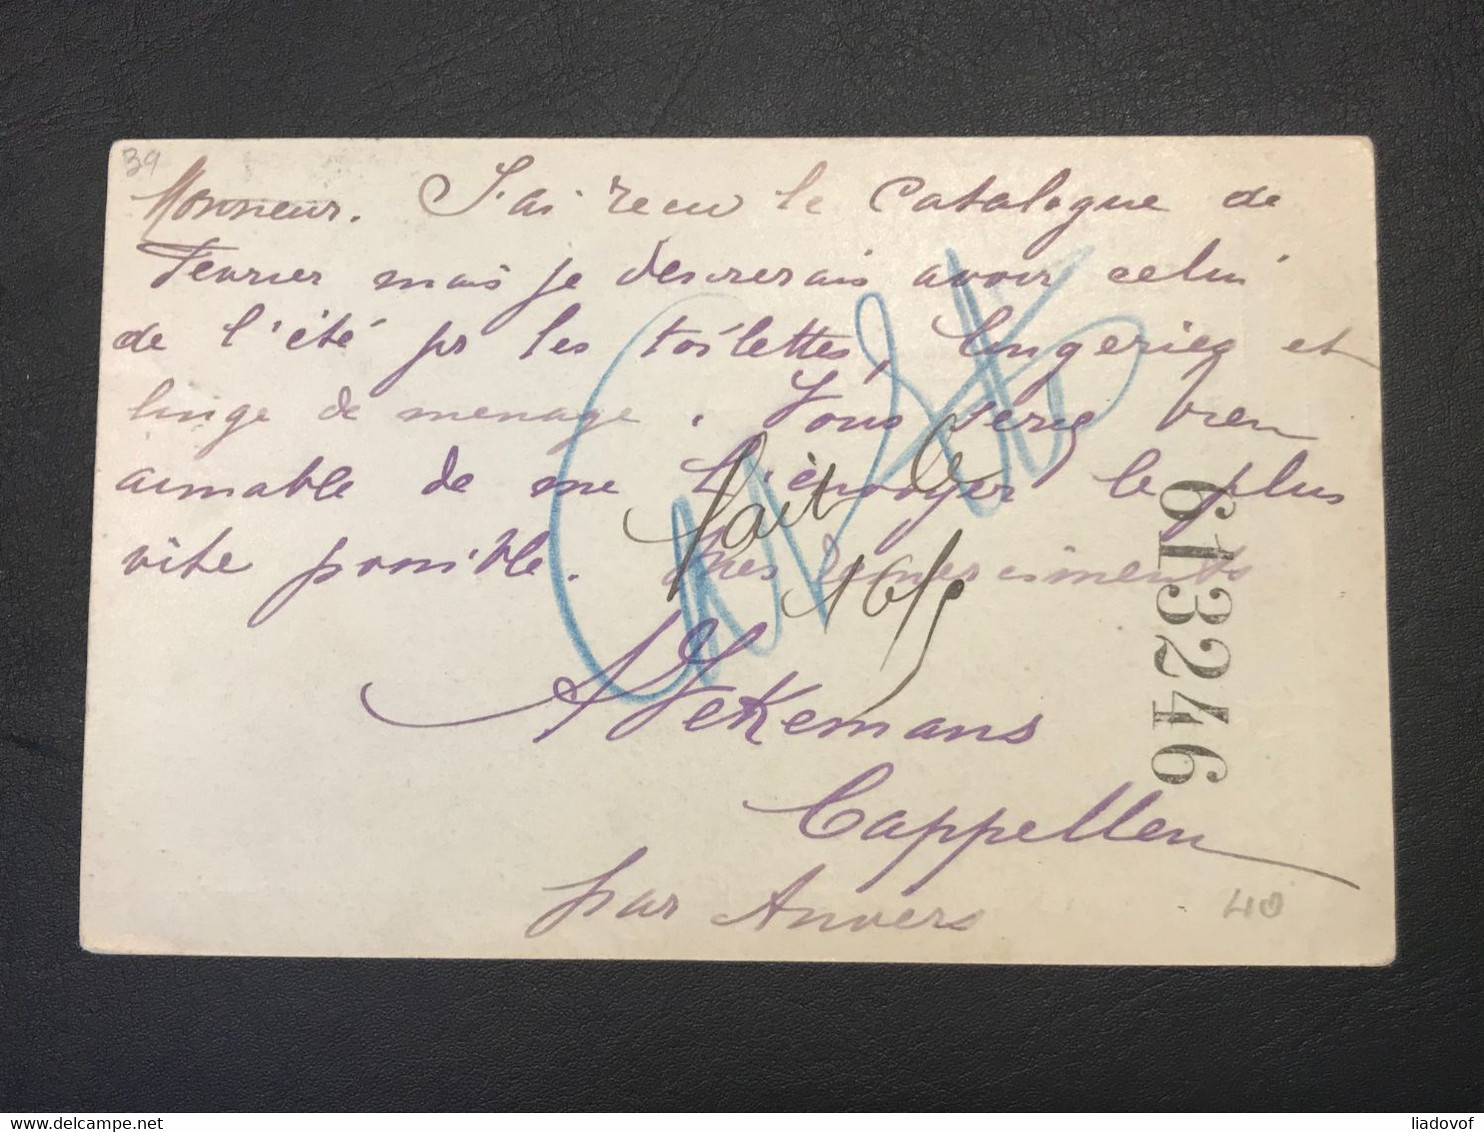 39
Monsieur. J'ai recu le Catalogue de
Fevrier mais je desirerais avoir celui
de l'été pr les toilettes, lingeries et
linge de menage. Vous serez bien
aimable de me l'envoyer le plus
vite possible. Mes remerciments
fait le
16/5
613246
Vekemans
Cappellen
par Anvers
40
delcampe.net
liadovof